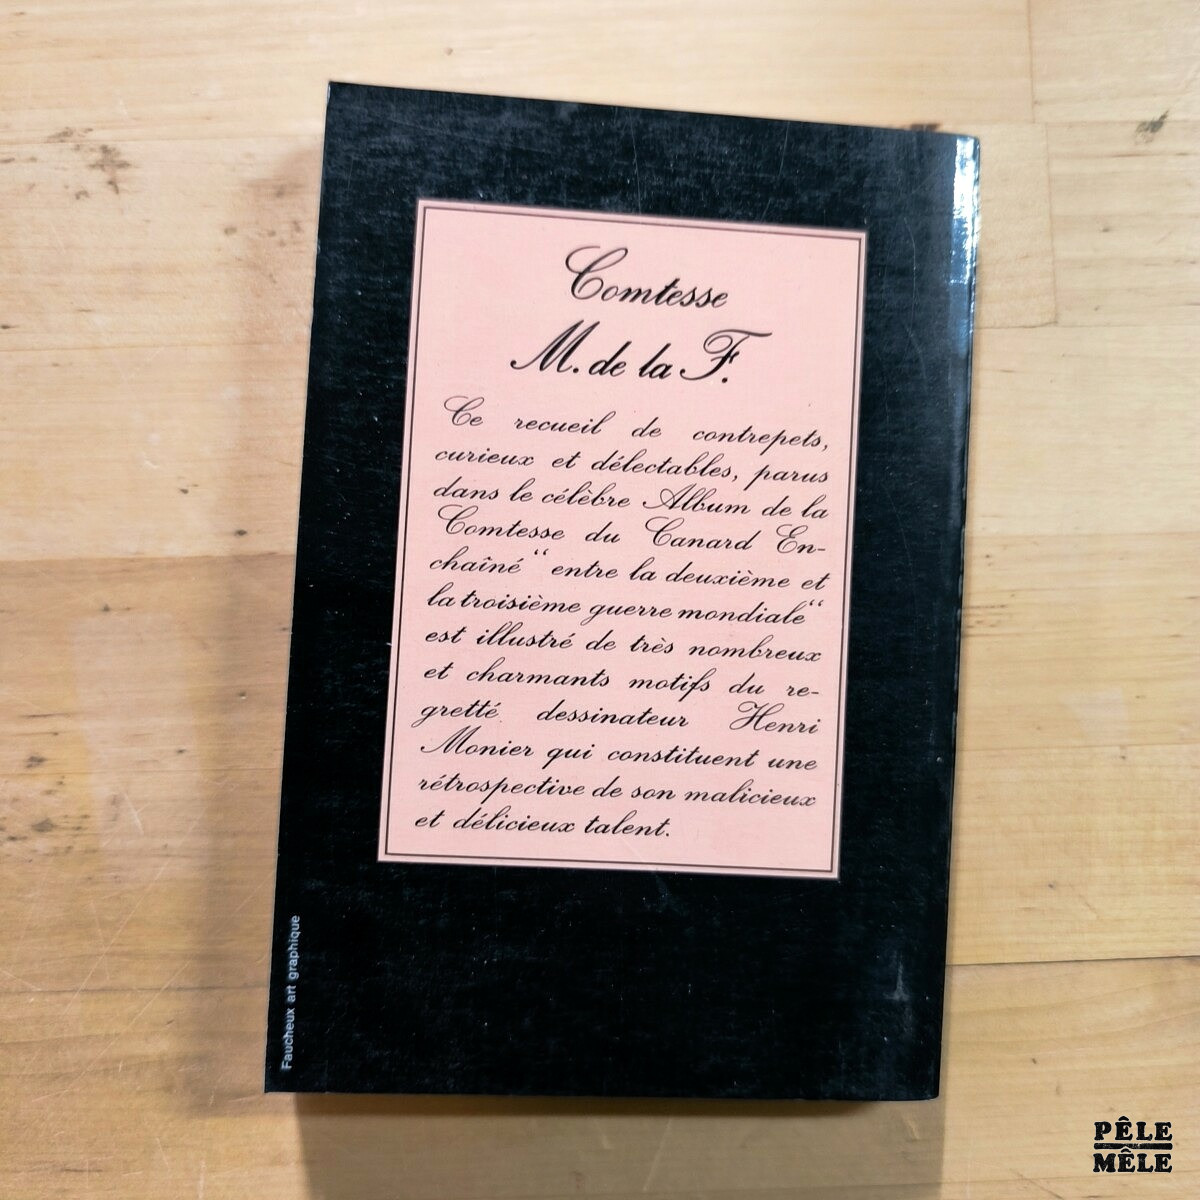 Comtesse
M. de la F.
Ce recueil de contrepets,
curieux et délectables, parus
dans le célèbre Album de la
Comtesse du Canard En-
chaîné “ entre la deuxième et
la troisième guerre mondiale “
est illustré de très nombreux
et charmants motifs du re-
gretté dessinateur Henri
Monier qui constituent une
rétrospective de son malicieux
et délicieux talent.
Faucheux art graphique
PÊLE
MÊLE